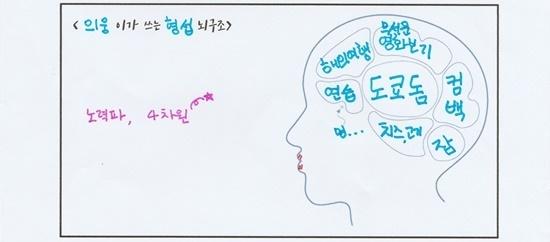 < 의웅 이가 쓰는 형섭 뇌구조>
노력파, 4차원
해외여행
무서운
영화보기
연습
도쿄돔
컴
백
멍...
치즈,고기
잠